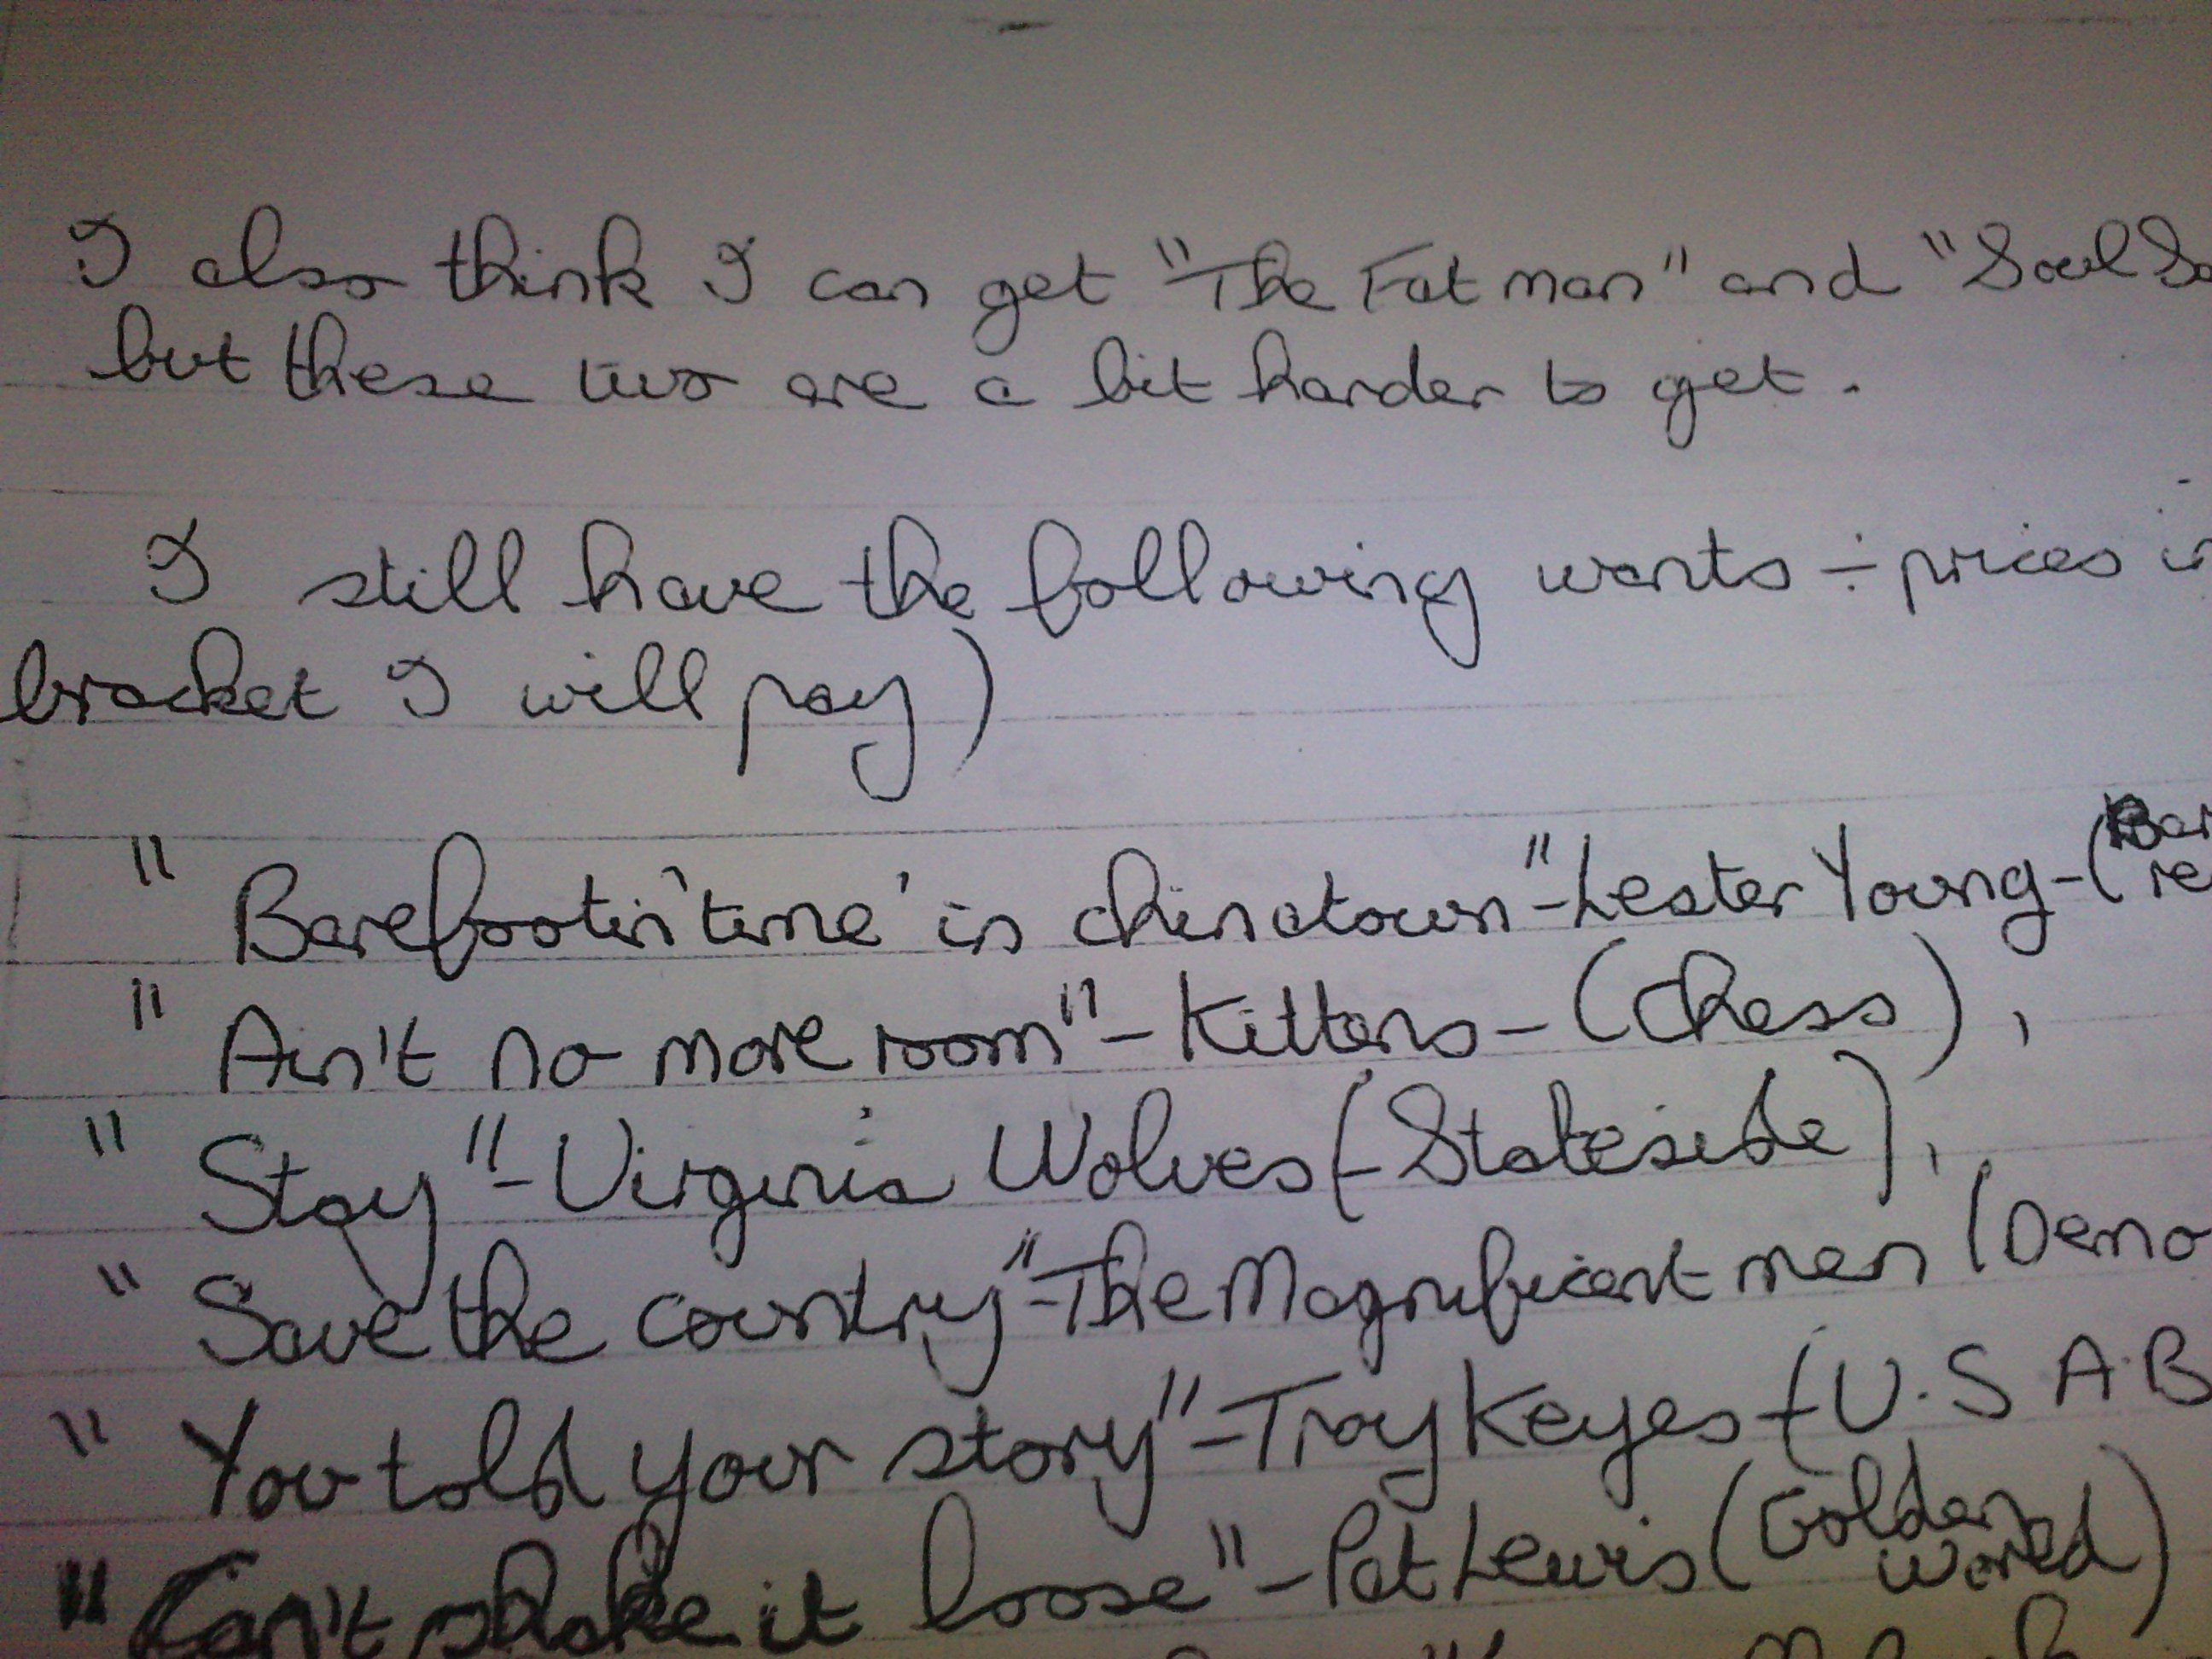 I also think I can get "The Fat man" and "Soul
but these two are a bit harder to get.
I still have the following wants - prices in
bracket I will pay)
" Barefootin' 'time' in chinatown" - Lester Young - (
" Ain't no more room" - Kittens - (Chess),
" Stay" - Virginia Wolves (-Stateside),
" Save the country" - The Magnificent men (
" You told your story" - Troy Keyes - (U.S A.B
" Can't shake it loose" - Pat Lewis (Golden
World)